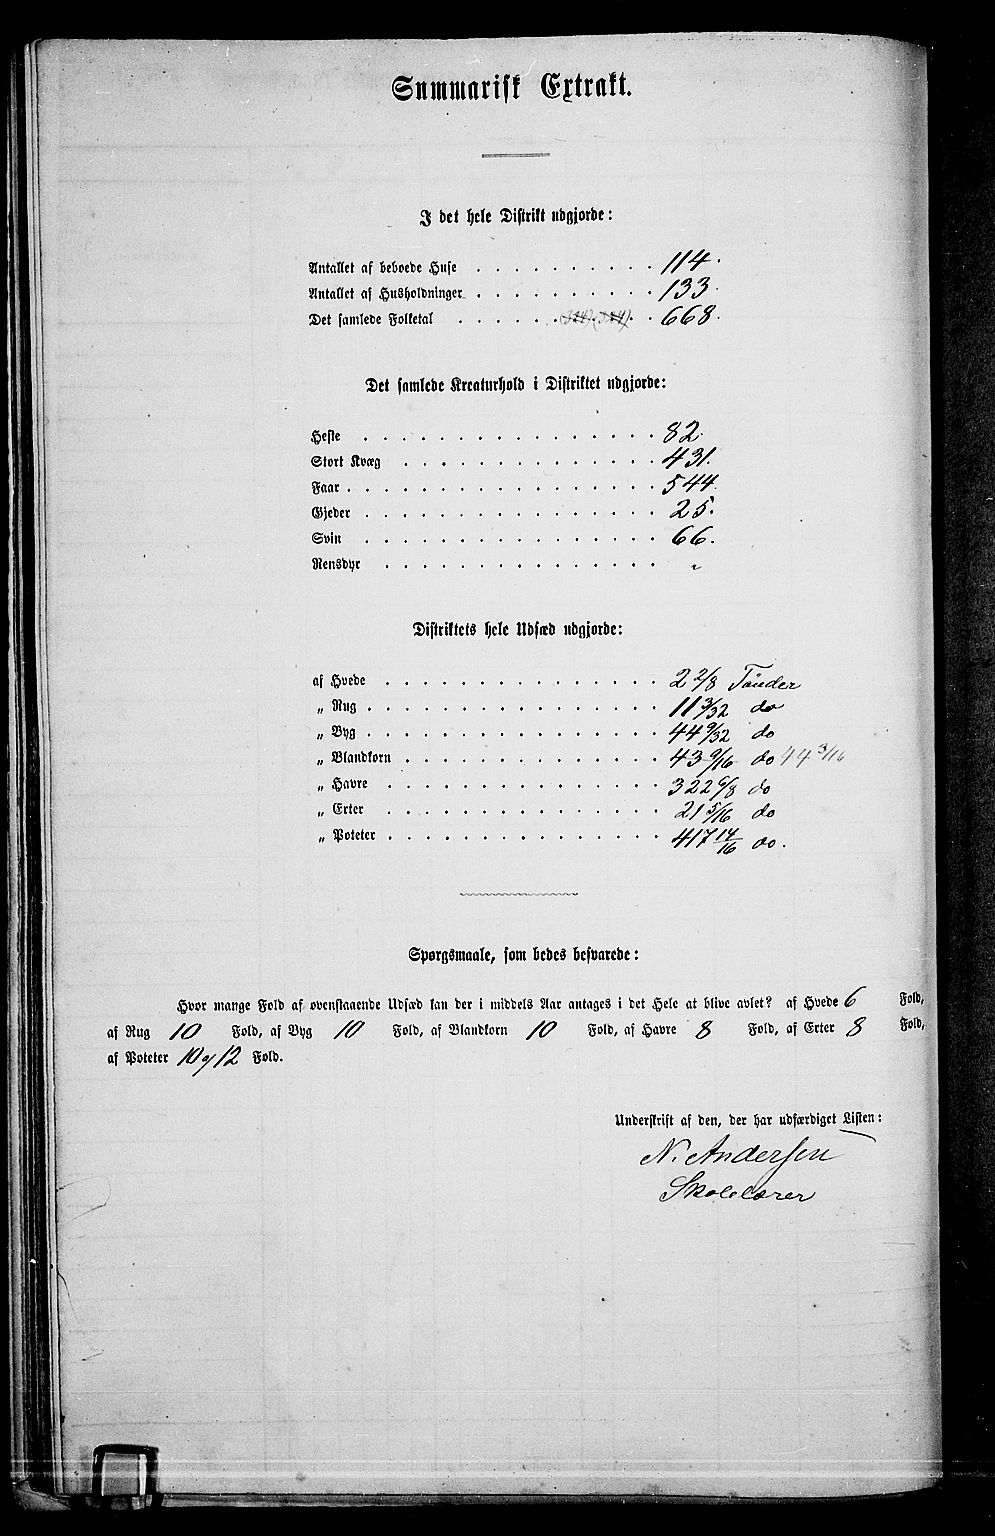 Summarisk Extrakt.
I det hele Distrikt udgjorde:
Antallet af beboede Huse . . . . . . . . . . 114.
Antallet af Husholdninger . . . . . . . . . . 133.
Det samlede Folketal . . . . . . . . . . 668.
Det samlede Kreaturhold i Distriktet udgjorde:
Heste . . . . . . . . . . . . . . . . 82.
Stort Kvæg . . . . . . . . . . . . . . 431.
Faar . . . . . . . . . . . . . . . . . 544.
Gjeder . . . . . . . . . . . . . . . . 25.
Svin . . . . . . . . . . . . . . . . 66.
Rensdyr . . . . . . . . . . . . . . . "
Distriktets hele Udsæd udgjorde:
af Hvede . . . . . . . . . . . . . . . 2 2/8 Tönder
„ Rug . . . . . . . . . . . . . . . . 11 3/32 do
„ Byg . . . . . . . . . . . . . . . . 44 9/32 do
„ Blandkorn . . . . . . . . . . . . . . 43 9/16 do 44 3/16
„ Havre . . . . . . . . . . . . . . . 322 6/8 do
„ Erter . . . . . . . . . . . . . . . 21 5/16 do
„ Poteter . . . . . . . . . . . . . . 417 14/16 do.
Spørgsmaale, som bedes besvarede:
Hvor mange Fold af ovenstaaende Udsæd kan der i middels Aar antages i det Hele at blive avlet? af Hvede 6 Fold,
af Rug 10 Fold, af Byg 10 Fold, af Blandkorn 10 Fold, af Havre 8 Fold, af Erter 8 Fold,
af Poteter 10 og 12 Fold.
Underskrift af den, der har udfærdiget Listen:
N. Andersen
Skolelærer